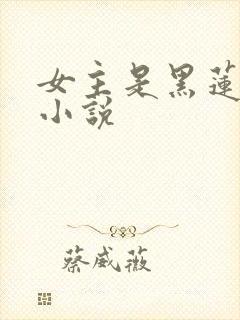 女主是黑蓮
小說
蔡威薇